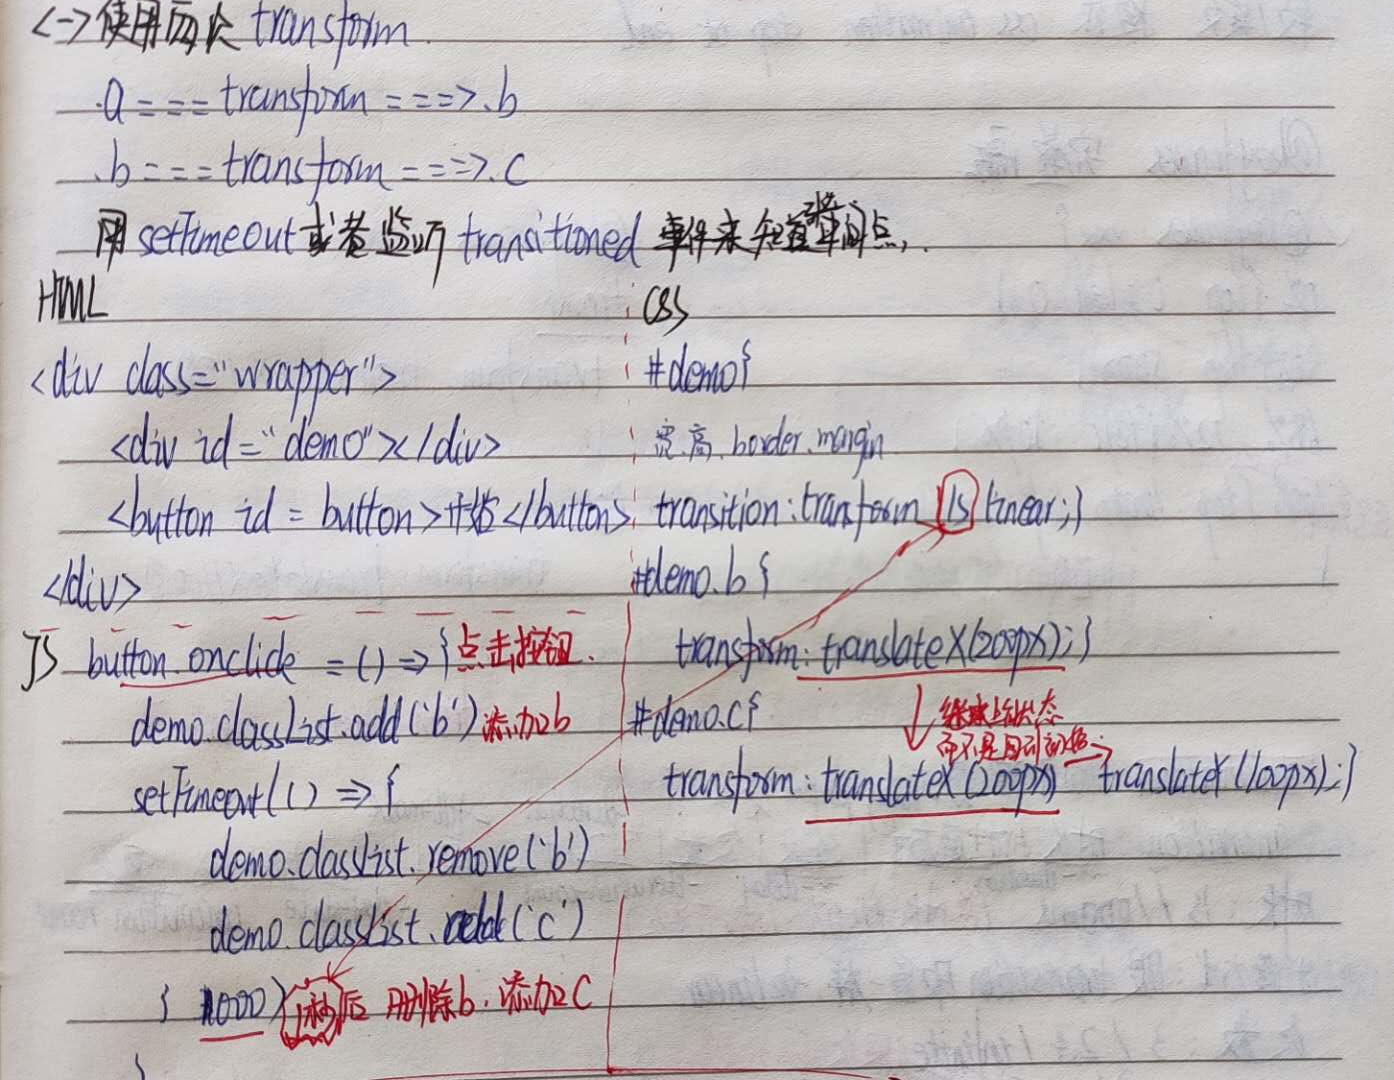 <一>使用两次 transform.
.a === transform ===>.b
.b === transform ===>.c
用 setTimeout 或者监听 transitioned 事件来知道中间点,.
HTML
<div class="wrapper">
<div id="demo"></div>
<button id = button>开始</button>
</div>
CSS
#demo{
宽.高.border.margin
transition:transform 1s linear;}
#demo.b {
transform: translateX(200px);}
继续上个状态
而不是回到初始
#demo.c{
transform: translateX(200px) translateY(100px);}
JS button.onclick = () => { 点击按钮.
demo.classList.add('b') 添加b
setTimeout(() => {
demo.classList.remove('b')
demo.classList.add('c')
} 1000) 1秒后 删除b.添加C
}